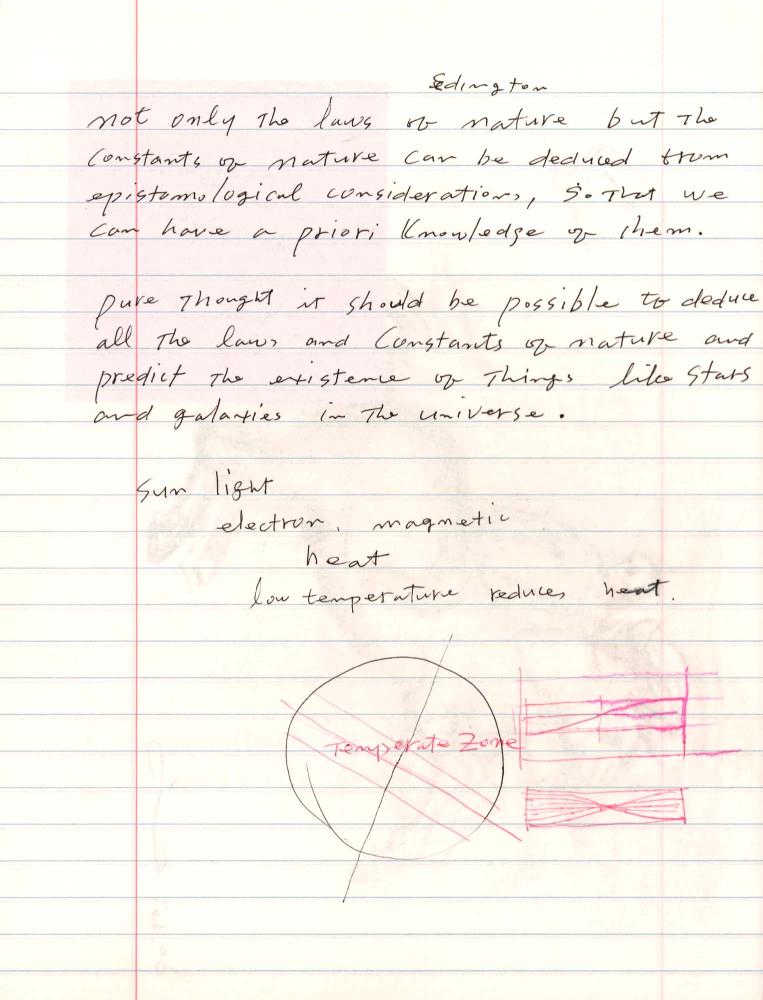 Eddington
not only the laws of nature but the
constants of nature can be deduced from
epistomological considerations, so that we
can have a priori knowledge of them.
pure thought it should be possible to deduce
all the laws and constants of nature and
predict the existence of things like stars
and galaxies in the universe.
sun light
electron, magnetic
heat
low temperature reduces heat.
Temperate Zone